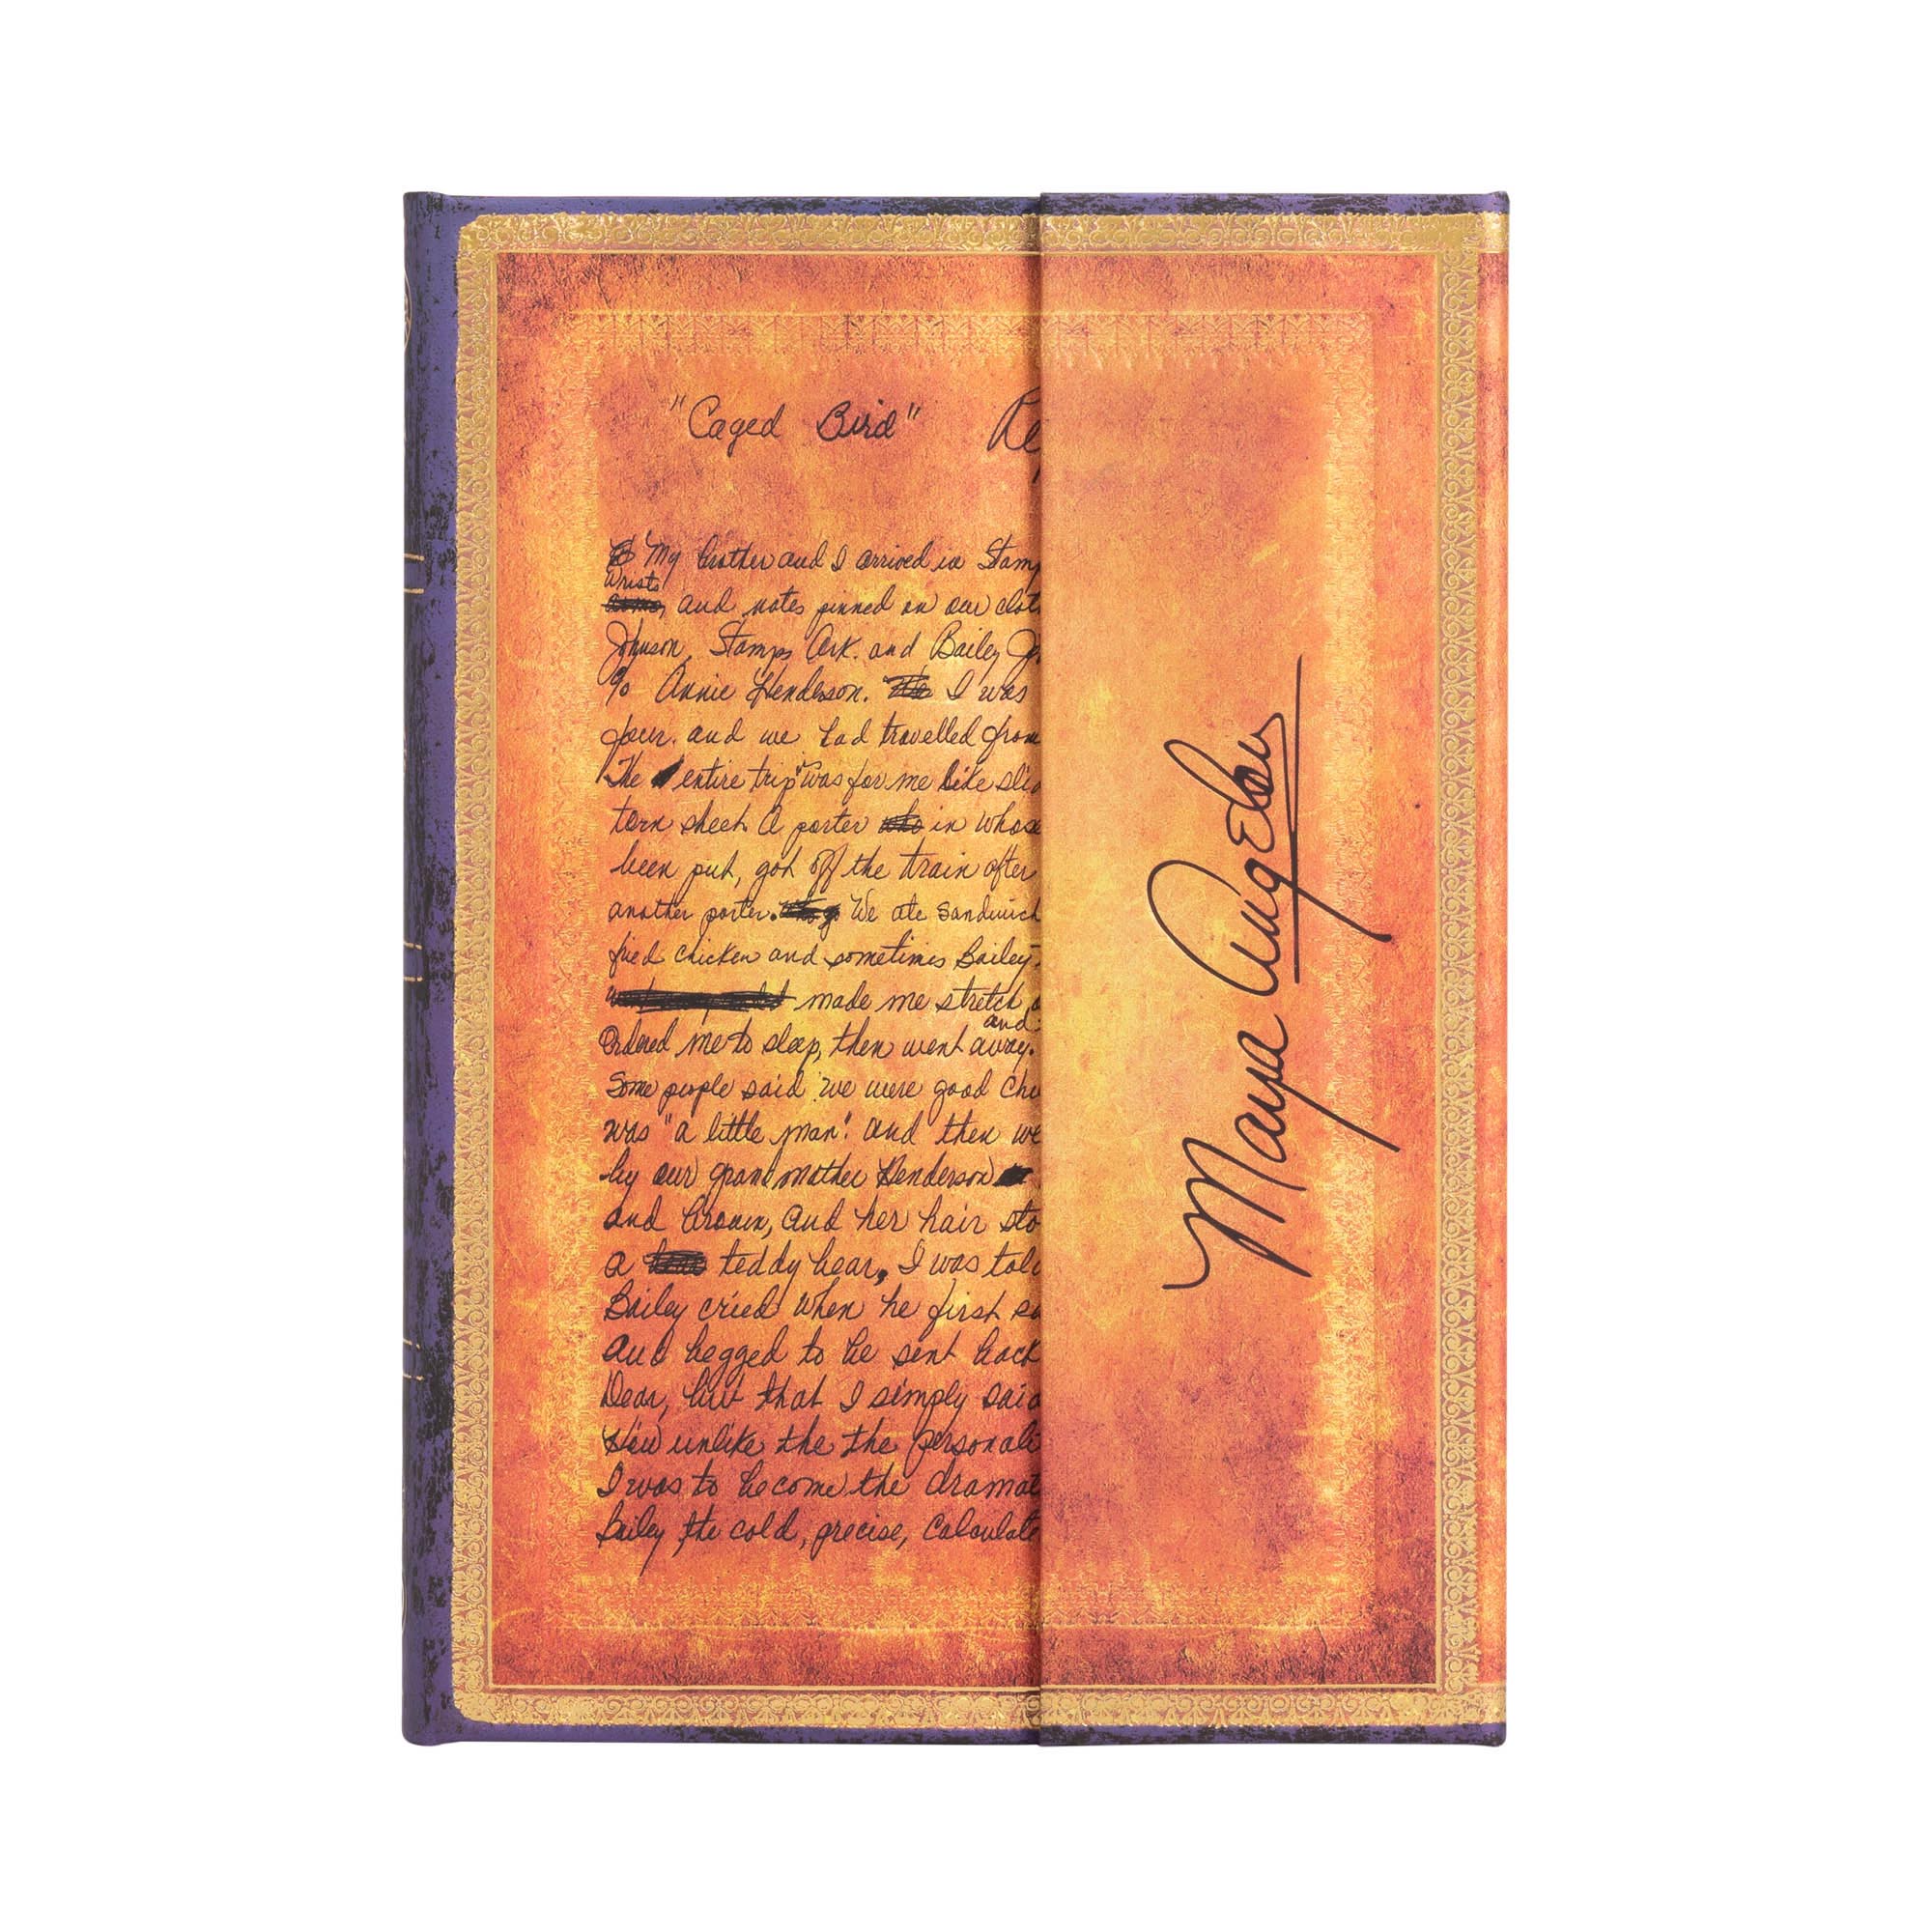 "Caged Bird" Re
My brother and I arrived in Stam
Wrists
and notes pinned on our clot
Johnson, Stamps Ark. and Bailey Jo
c/o Annie Henderson. I was
four. and we had travelled from
The entire trip was for me like sli
torn sheet. A porter who in whose
been put, got off the train after
another porter. We ate sandwich
fried chicken and sometimes Bailey
made me stretch
and
Ordered me to sleep, then went away.
Some people said we were good chi
was "a little man". and then we
by our grandmother Henderson
and brown, and her hair sto
a teddy bear, I was tol
Bailey cried when he first s
And begged to be sent back
Dear, but that I simply said
How unlike the the personali
I was to become the dramat
Bailey the cold, precise, calculate
Maya Angelou